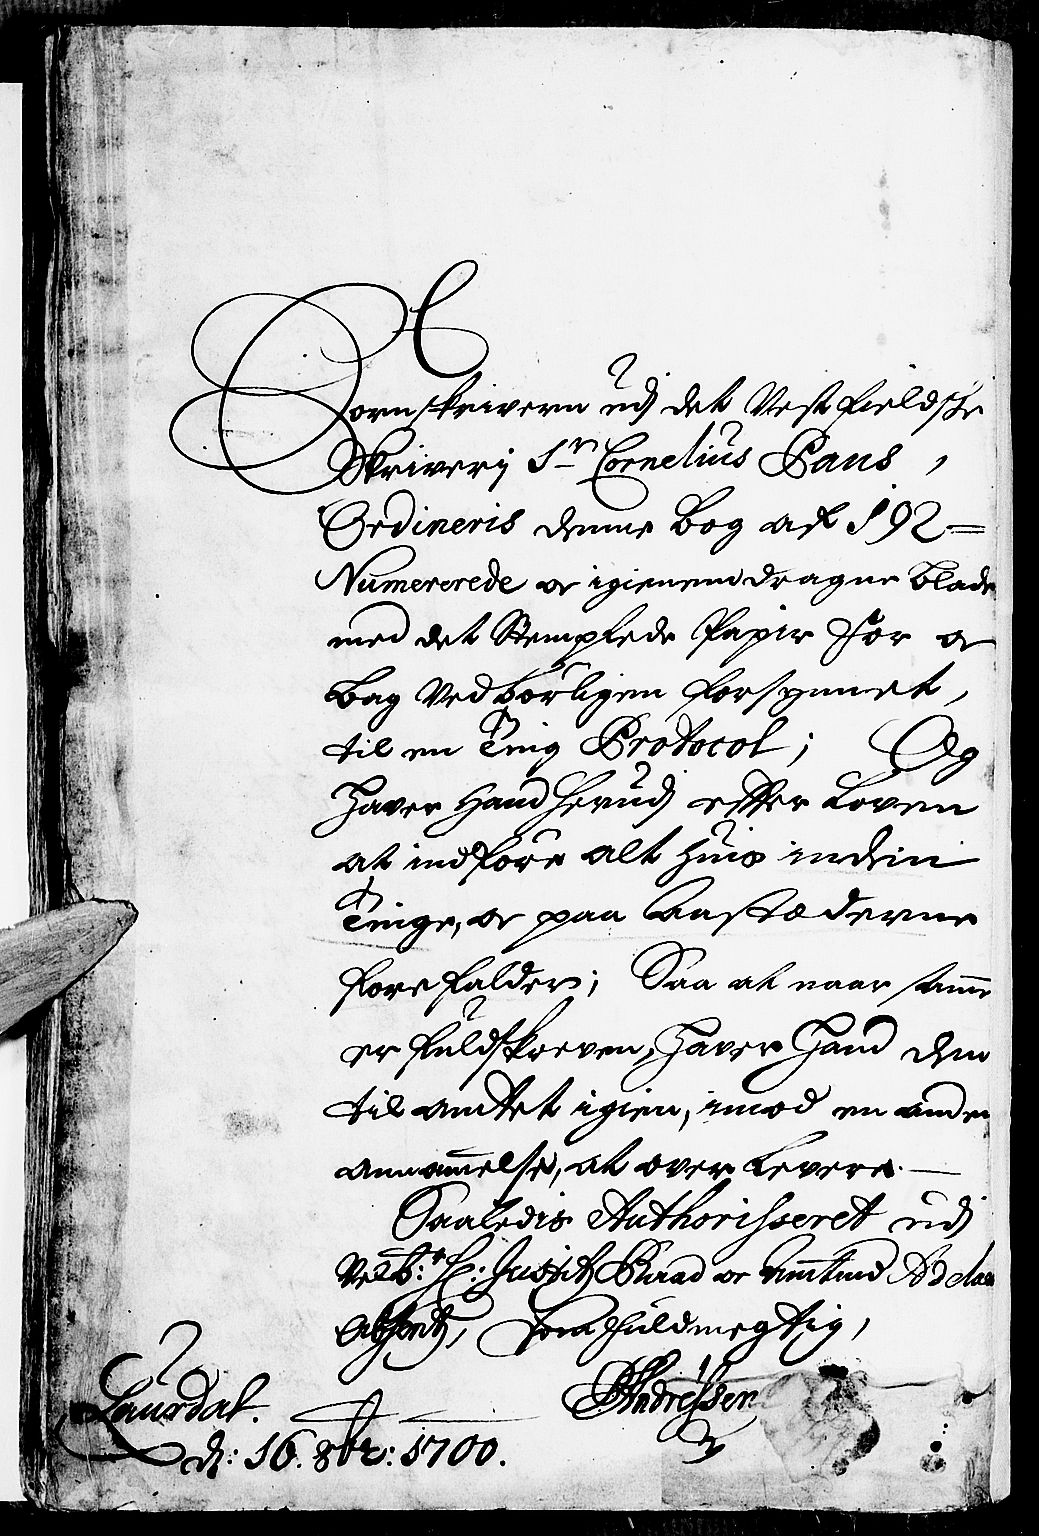 Sorenskriveren udj det Vestfieldske
Skriverj Sr Cornelius Paus,
Ordineris denne Bog af 192 =
Numererede oc igienemdragne Blade
med det Stemplede Papir for oc
bag Vedbörligen forsynnet,
til en Ting Protocol; Og
hafver Hand herudj efter Loven
at indföre alt huis inden
Tinge, oc paa Aastæderne
forefalder; Saa at naar samme
er fuldskreven, hafver Hand den
til amtet igien, imod en anden
annammelse, at over Levere. —
Saaledis Authorisseret udj
Velb: H: Justitz Raad oc Amtmd Adelaers
absentz, som fuldmegtig,
Laurdal.
d: 16. 8br: 1700.
Andressen